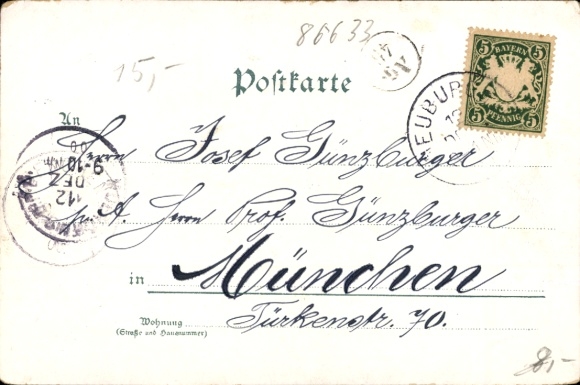 86633
15,-
Postkarte
5 BAYERN 5
5 PFENNIG 5
NEUBUR
12
An
Herrn Josef Günzburger
9-10
DEZ
12
p. A. Herrn Prof. Günzburger
in München
Wohnung
(Straße und Hausnummer)
Türkenstr. 70.
8,-